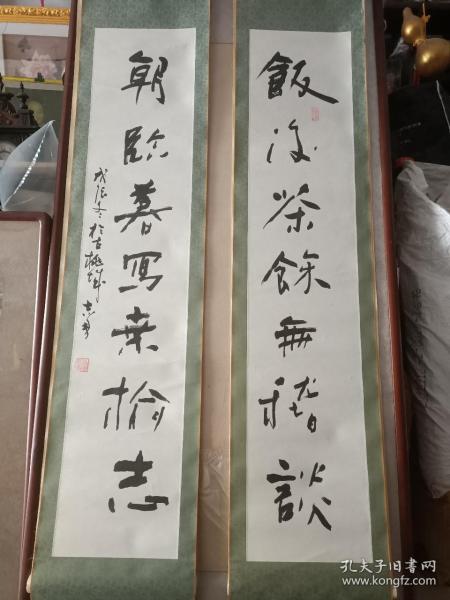 飯後茶餘無稽談
朝臨暮寫桑榆志
戊辰冬於古桃城
孔夫子旧书网
www.kongfz.com